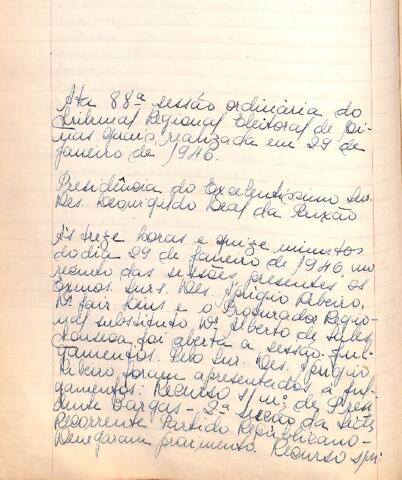 Ata 88ª sessão ordinária do
Tribunal Regional Eleitoral de Mi-
nas Gerais, realizada em 29 de
janeiro de 1946.
Presidência do Excelentíssimo Snr.
Des. Leovigildo Leal da Paixão
Às treze horas e quize minutos
do dia 29 de janeiro de 1946, no
recinto das sessões, presentes os
Exmos. Snrs. Des. Aprigio Ribeiro,
Dr. Jair Lins e o Procurador Regio-
nal substituto, Dr. Alberto de
Fonseca foi aberta a sessão. Jul-
gamentos. Pelo Snr. Des. Aprigio
Ribeiro, foram apresentados a jul-
gamentos: Recurso s/nº de Presi-
dente Vargas - 8ª secção da
Recorrente Partido Republicano -
Denegaram provimento. Recurso s/nº